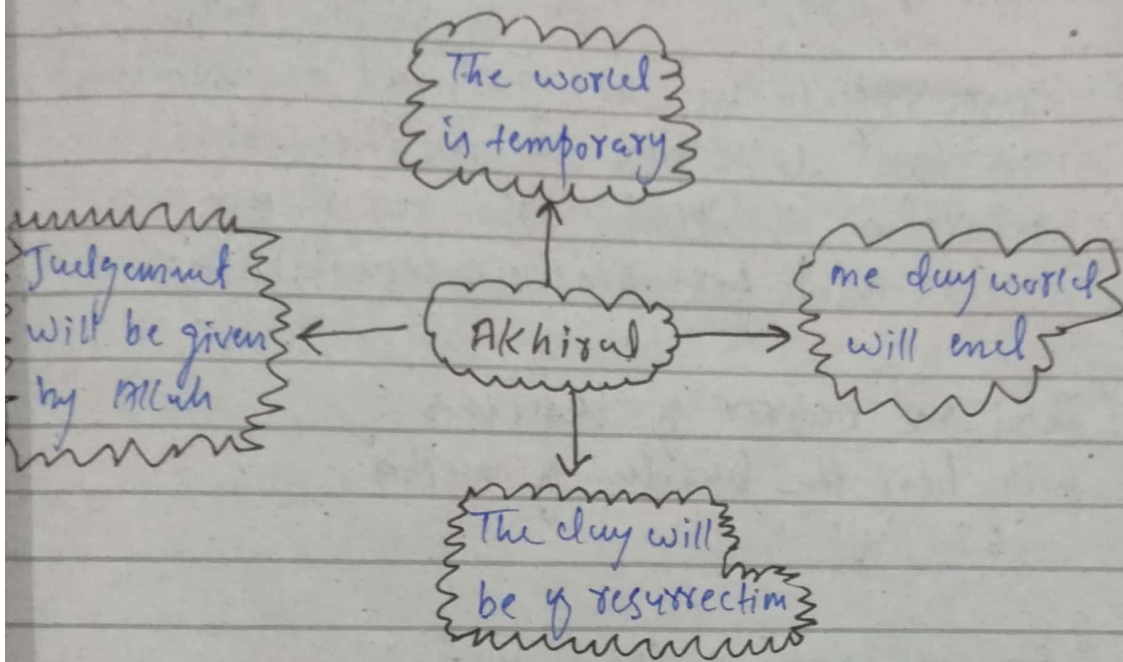 The world
is temporary
Judgement
will be given
by Allah
Akhirat
One day world
will end
The day will
be of resurrection